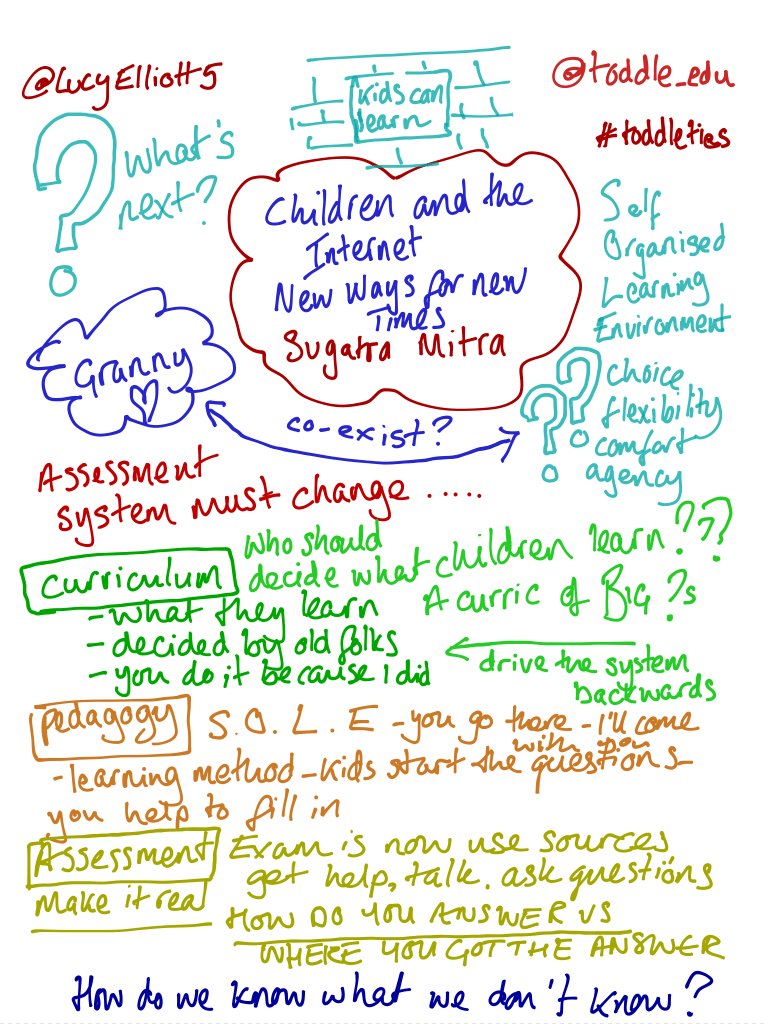 @LucyElliott5
kids can
learn
@toddle_edu
#toddleties
What's
next?
Children and the
Internet
New Ways for new
Times
Sugatra Mitra
Self
Organised
Learning
Environment
Granny
co-exist?
??
choice
flexibility
comfort
agency
Assessment
system must change .....
curriculum
- what they learn
- decided by old folks
- you do it because I did
Who should
decide what children learn???
A curric of BIG ?s
drive the system
backwards
pedagogy
S.O.L.E - you go there - I'll come
with you
- learning method - kids start the questions -
you help to fill in
Assessment
Make it real
Exam is now use sources
get help, talk. ask questions
HOW DO YOU ANSWER VS
WHERE YOU GOT THE ANSWER
How do we know what we don't know?